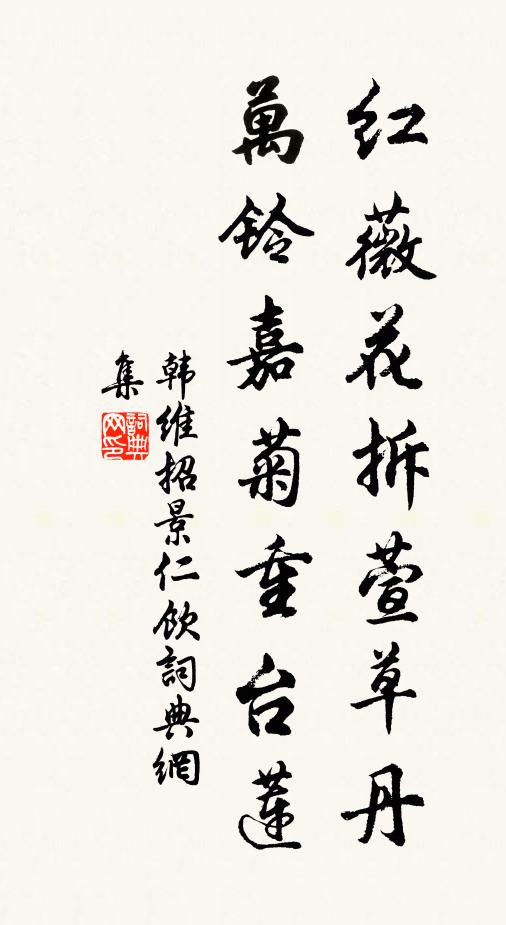 红薇花拆萱草丹
萬鈴嘉菊重台蓮
韩维招景仁飲詞典網
集
詞典网印